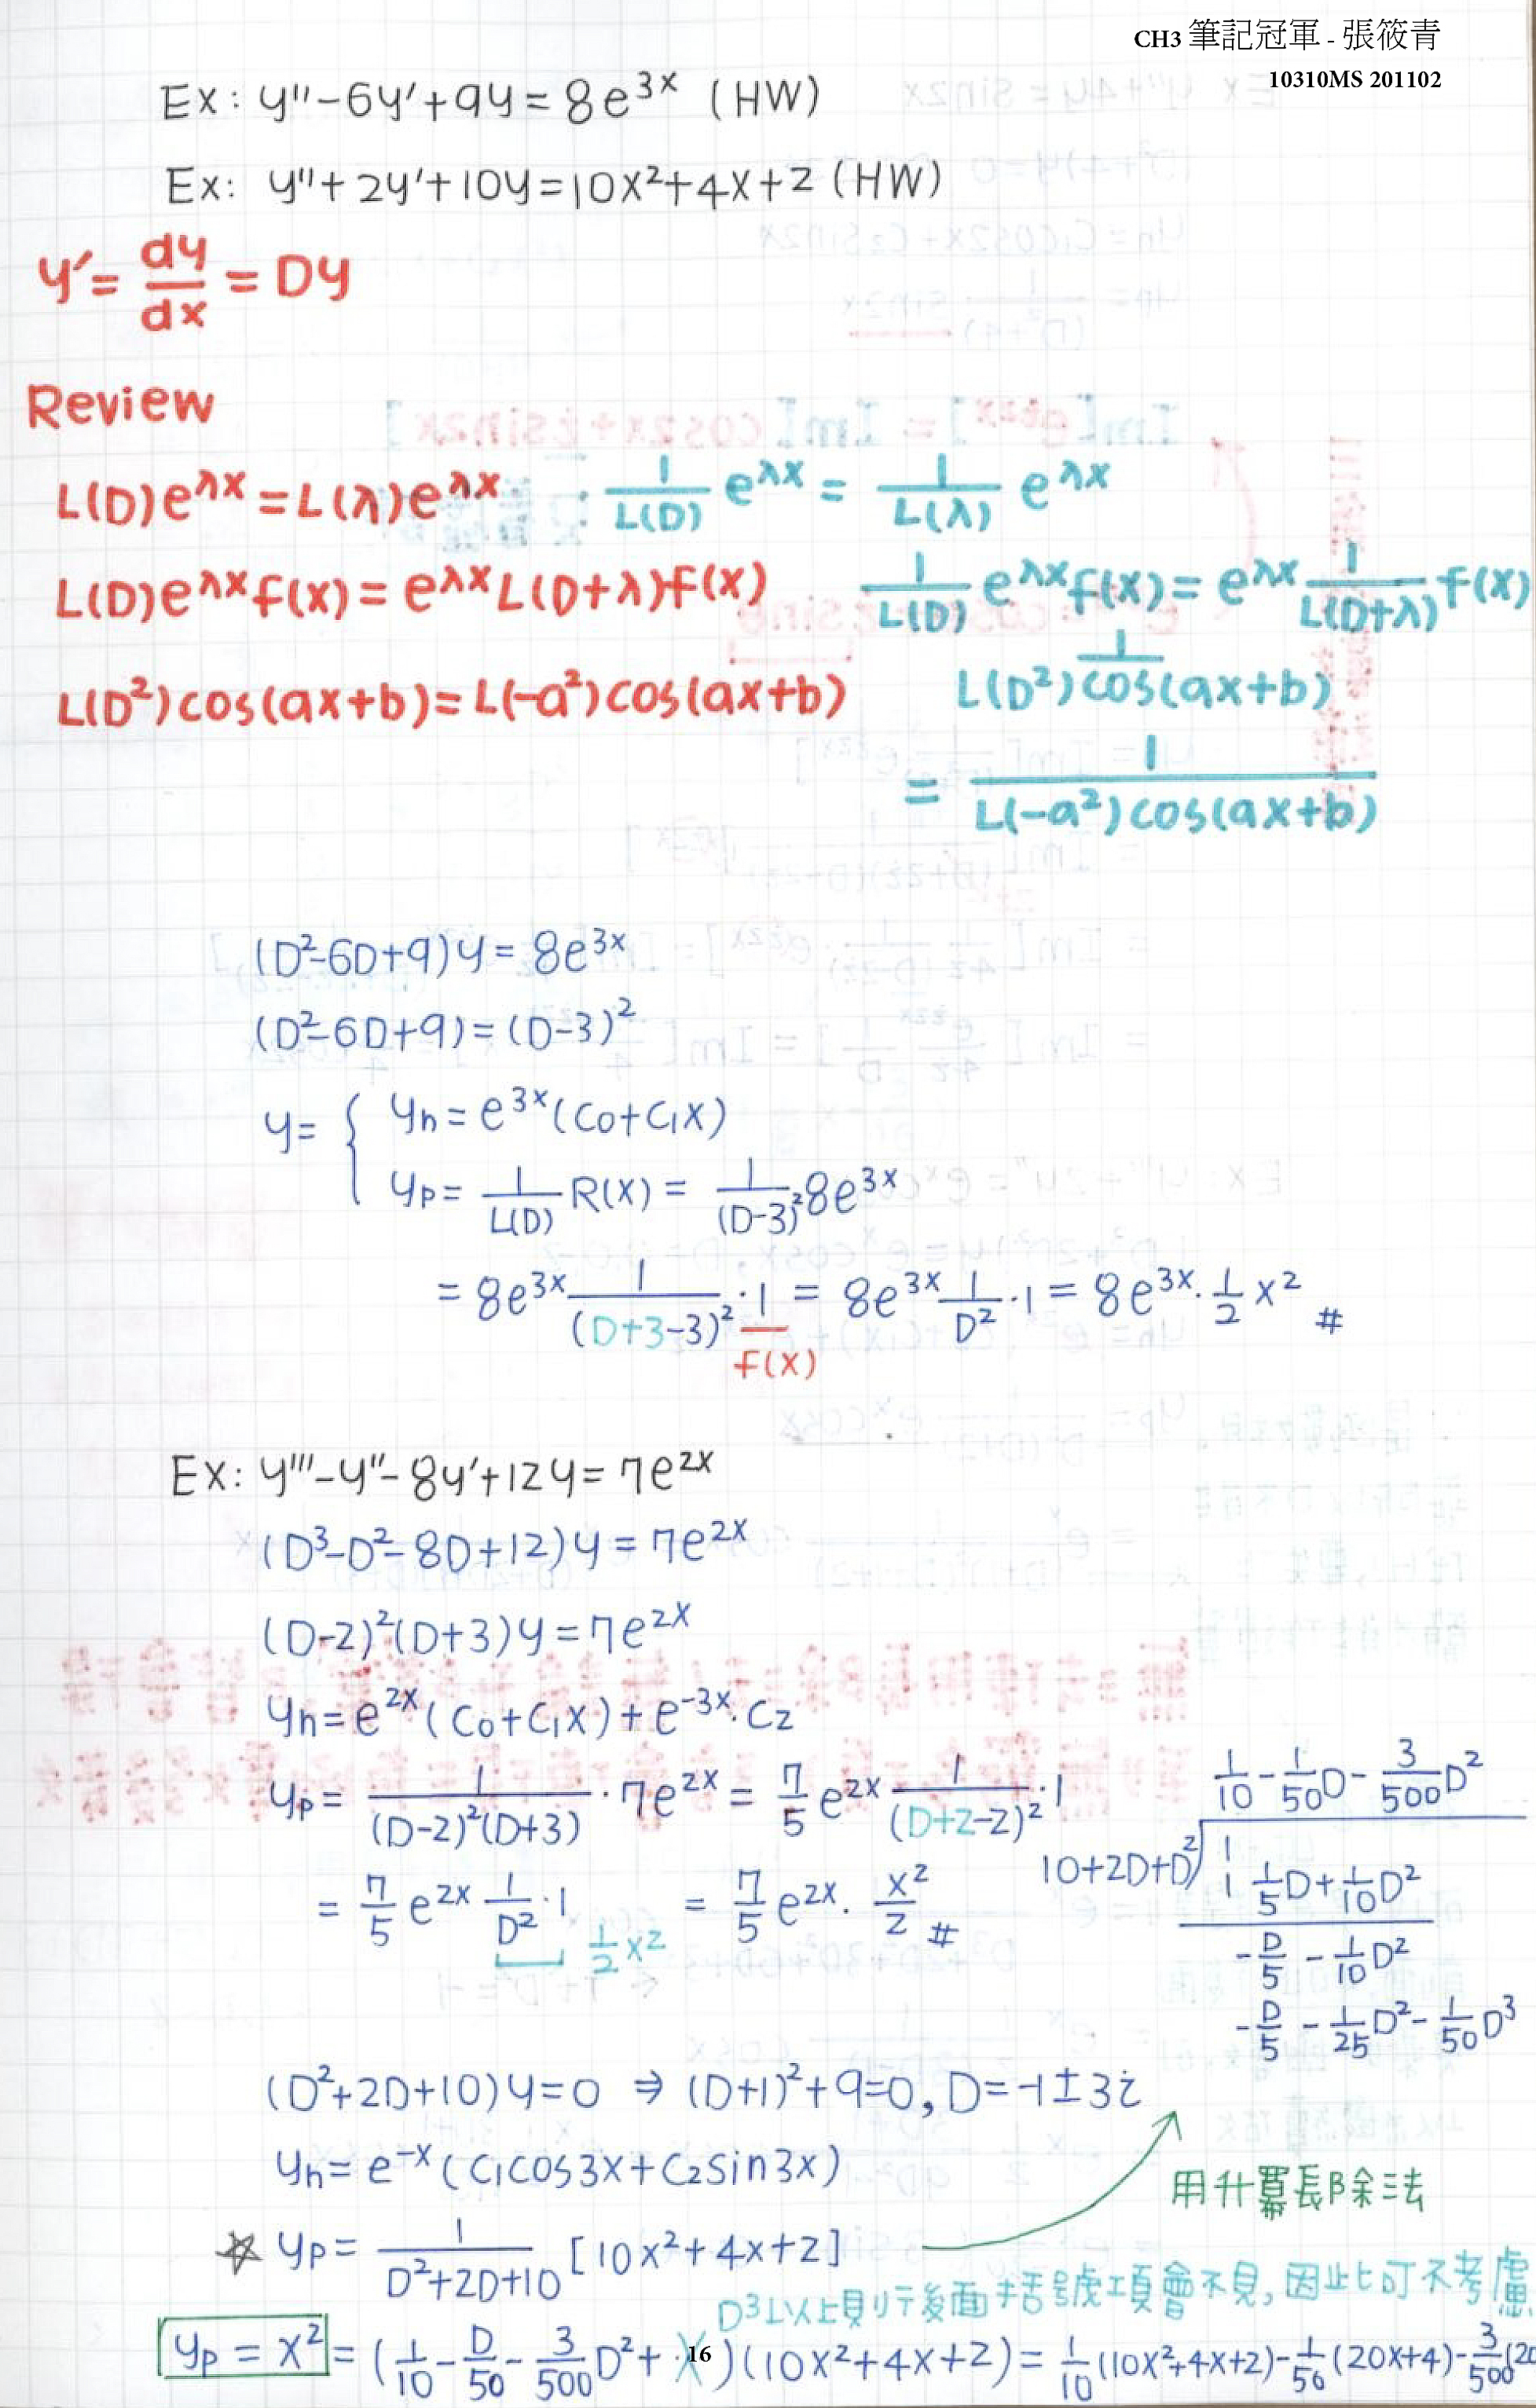 CH3 筆記冠軍 - 張筱青
10310MS 201102
Ex: y''-6y'+9y=8e^{3x} (HW)
Ex: y''+2y'+10y=10x²+4x+2 (HW)
y'= dy/dx = Dy
Review
L(D)e^{λx}=L(λ)e^{λx} 1/L(D) e^{λx} = 1/L(λ) e^{λx}
L(D)e^{λx}f(x)=e^{λx}L(D+λ)f(x) 1/L(D) e^{λx}f(x)=e^{λx} 1/L(D+λ) f(x)
L(D²)cos(ax+b)=L(-a²)cos(ax+b) 1/L(D²)cos(ax+b)
= 1/L(-a²)cos(ax+b)
(D²-6D+9)y=8e^{3x}
(D²-6D+9)=(D-3)²
y= { yh=e^{3x}(C0+C1x)
yp= 1/L(D) R(x)= 1/(D-3)² 8e^{3x}
=8e^{3x} 1/(D+3-3)² ·1 = 8e^{3x} 1/D² ·1 = 8e^{3x}·1/2 x² #
f(x)
Ex: y'''-y''-8y'+12y=7e^{2x}
(D³-D²-8D+12)y=7e^{2x}
(D-2)²(D+3)y=7e^{2x}
yh=e^{2x}(C0+C1x)+e^{-3x}·C2
yp= 1/(D-2)²(D+3) ·7e^{2x} = 7/5 e^{2x} 1/(D+2-2)² ·1
= 7/5 e^{2x} 1/D² ·1 = 7/5 e^{2x}· x²/2 #
1/2 x²
1/10 - 1/50 D - 3/500 D²
10+2D+D² 1
1 1/5 D+1/10 D²
-D/5 - 1/10 D²
-D/5 - 1/25 D² - 1/50 D³
(D²+2D+10)y=0 ⇒ (D+1)²+9=0, D=-1±3i
yh=e^{-x}(C1cos3x+C2sin3x)
用升冪長除法
☆ yp= 1/D²+2D+10 [10x²+4x+2]
D³以上貝リ後面括號項會不見,因此可不考慮
yp=x² =(1/10 - D/50 - 3/500 D²+ )(10x²+4x+2)= 1/10(10x²+4x+2)-1/50(20x+4)-3/500(20
16